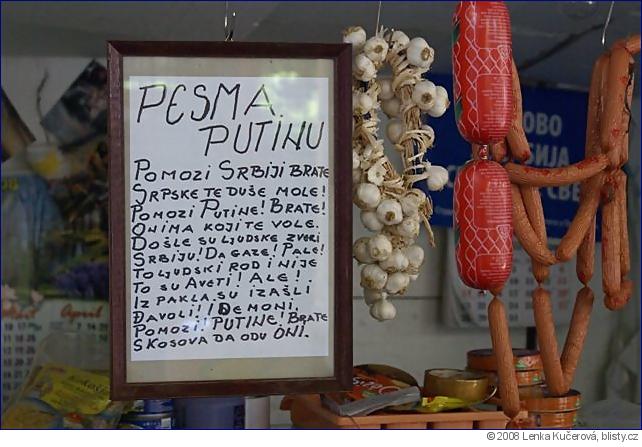 PESMA
PUTINU
POMOZI SRBIJI BRATE
SRPSKE TE DUŠE MOLE!
POMOZI PUTINE! BRATE!
ONIMA KOJI TE VOLE.
DOŠLE SU LJUDSKE ZVERI
SRBIJU! DA GAZE! PALE!
TO LJUDSKI ROD I NIJE
TO SU AVETI! ALE!
IZ PAKLA SU IZAŠLI
ĐAVOLI! DEMONI.
POMOZI! PUTINE! BRATE
S KOSOVA DA ODU ONI.
OVO
SIJA
April
© 2008 Lenka Kučerová, blisty.cz